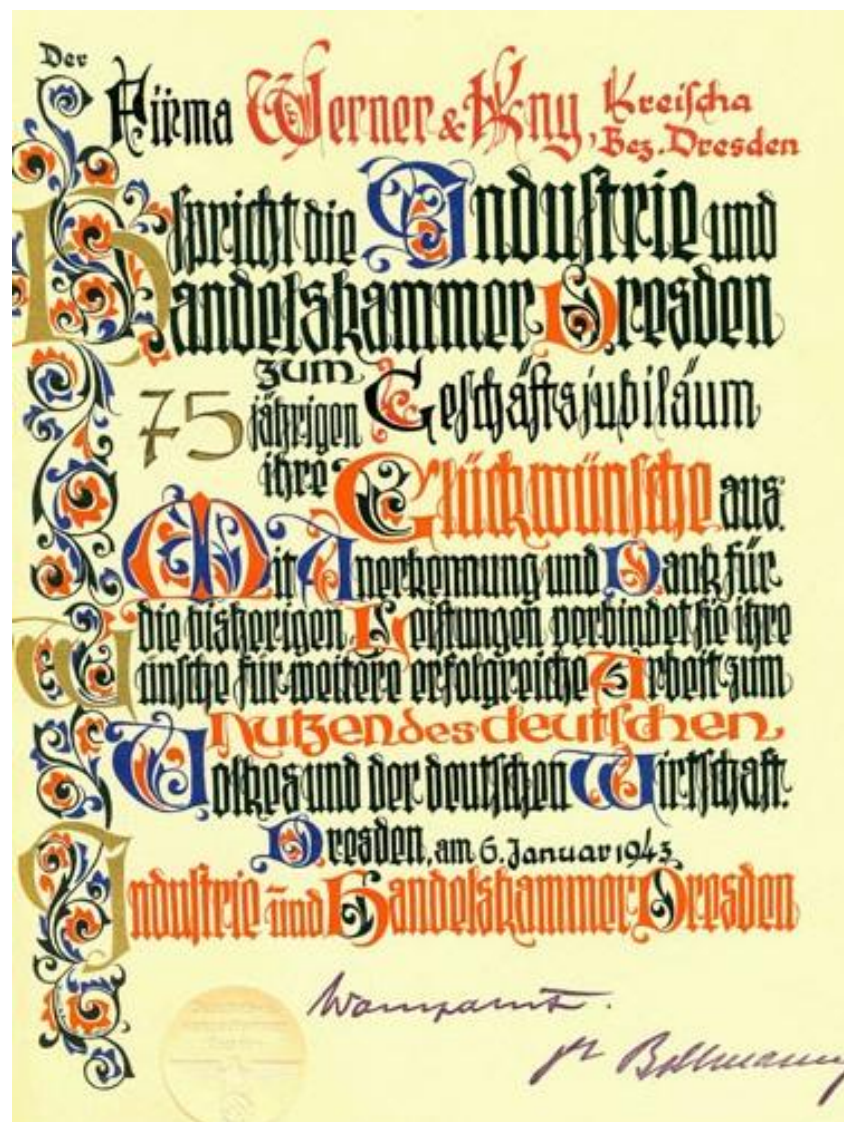 Der
Firma Werner & Kny, Kreischa
Bez. Dresden
spricht die Industrie und
Handelskammer Dresden
zum
75 jährigen Geschäftsjubiläum
ihre Glückwünsche aus.
Mit Anerkennung und Dank für
die bisherigen Leistungen verbindet sie ihre
Wünsche für weitere erfolgreiche Arbeit zum
Nutzen des deutschen
Volkes und der deutschen Wirtschaft.
Dresden, am 6. Januar 1943
Industrie und Handelskammer Dresden